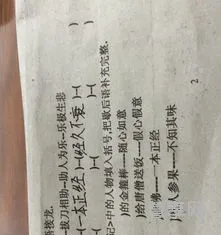 语接龙.
拔刀相助--助人为乐--乐极生悲
--(一本正经)--(经久不衰)--(
记>中的人物填入括号,把歇后语补充完整.
)的金箍棒----随心如意
)给唐僧送饭----假心假意
)佛----一本正经
)人参果----不知其味
2